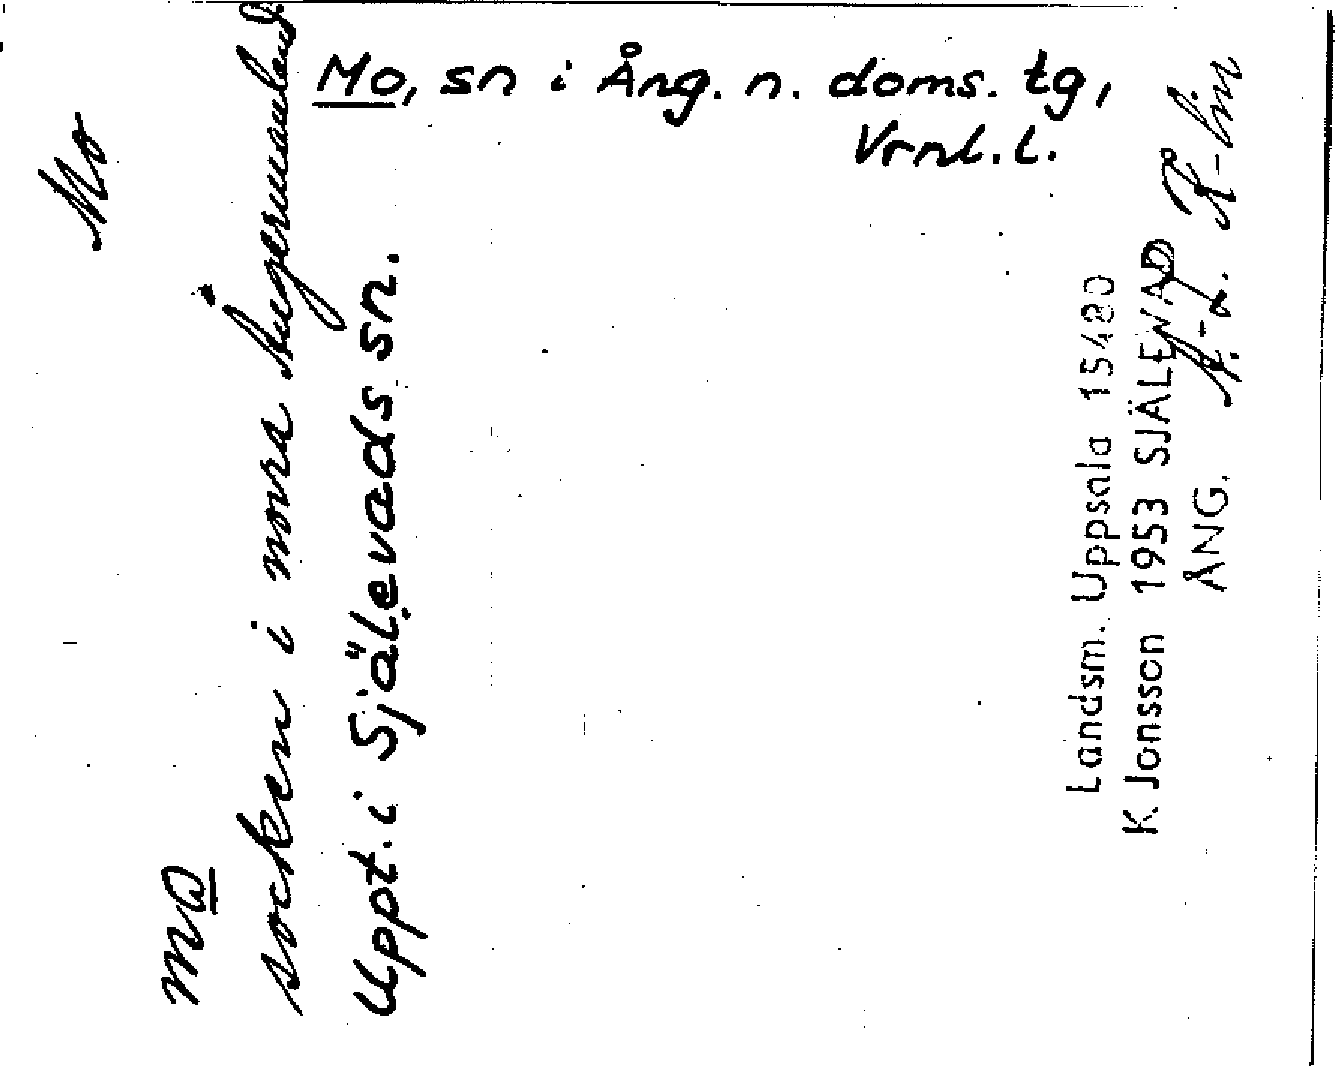 Mo, sn i Ång. n. doms. tg,
Vrnl. l.
Mo
socken i norra Ångermanland.
Uppt. i Själevads sn.
Landsm. Uppsala 15480
K. Jonsson 1953 SJÄLEVAD
ÅNG.